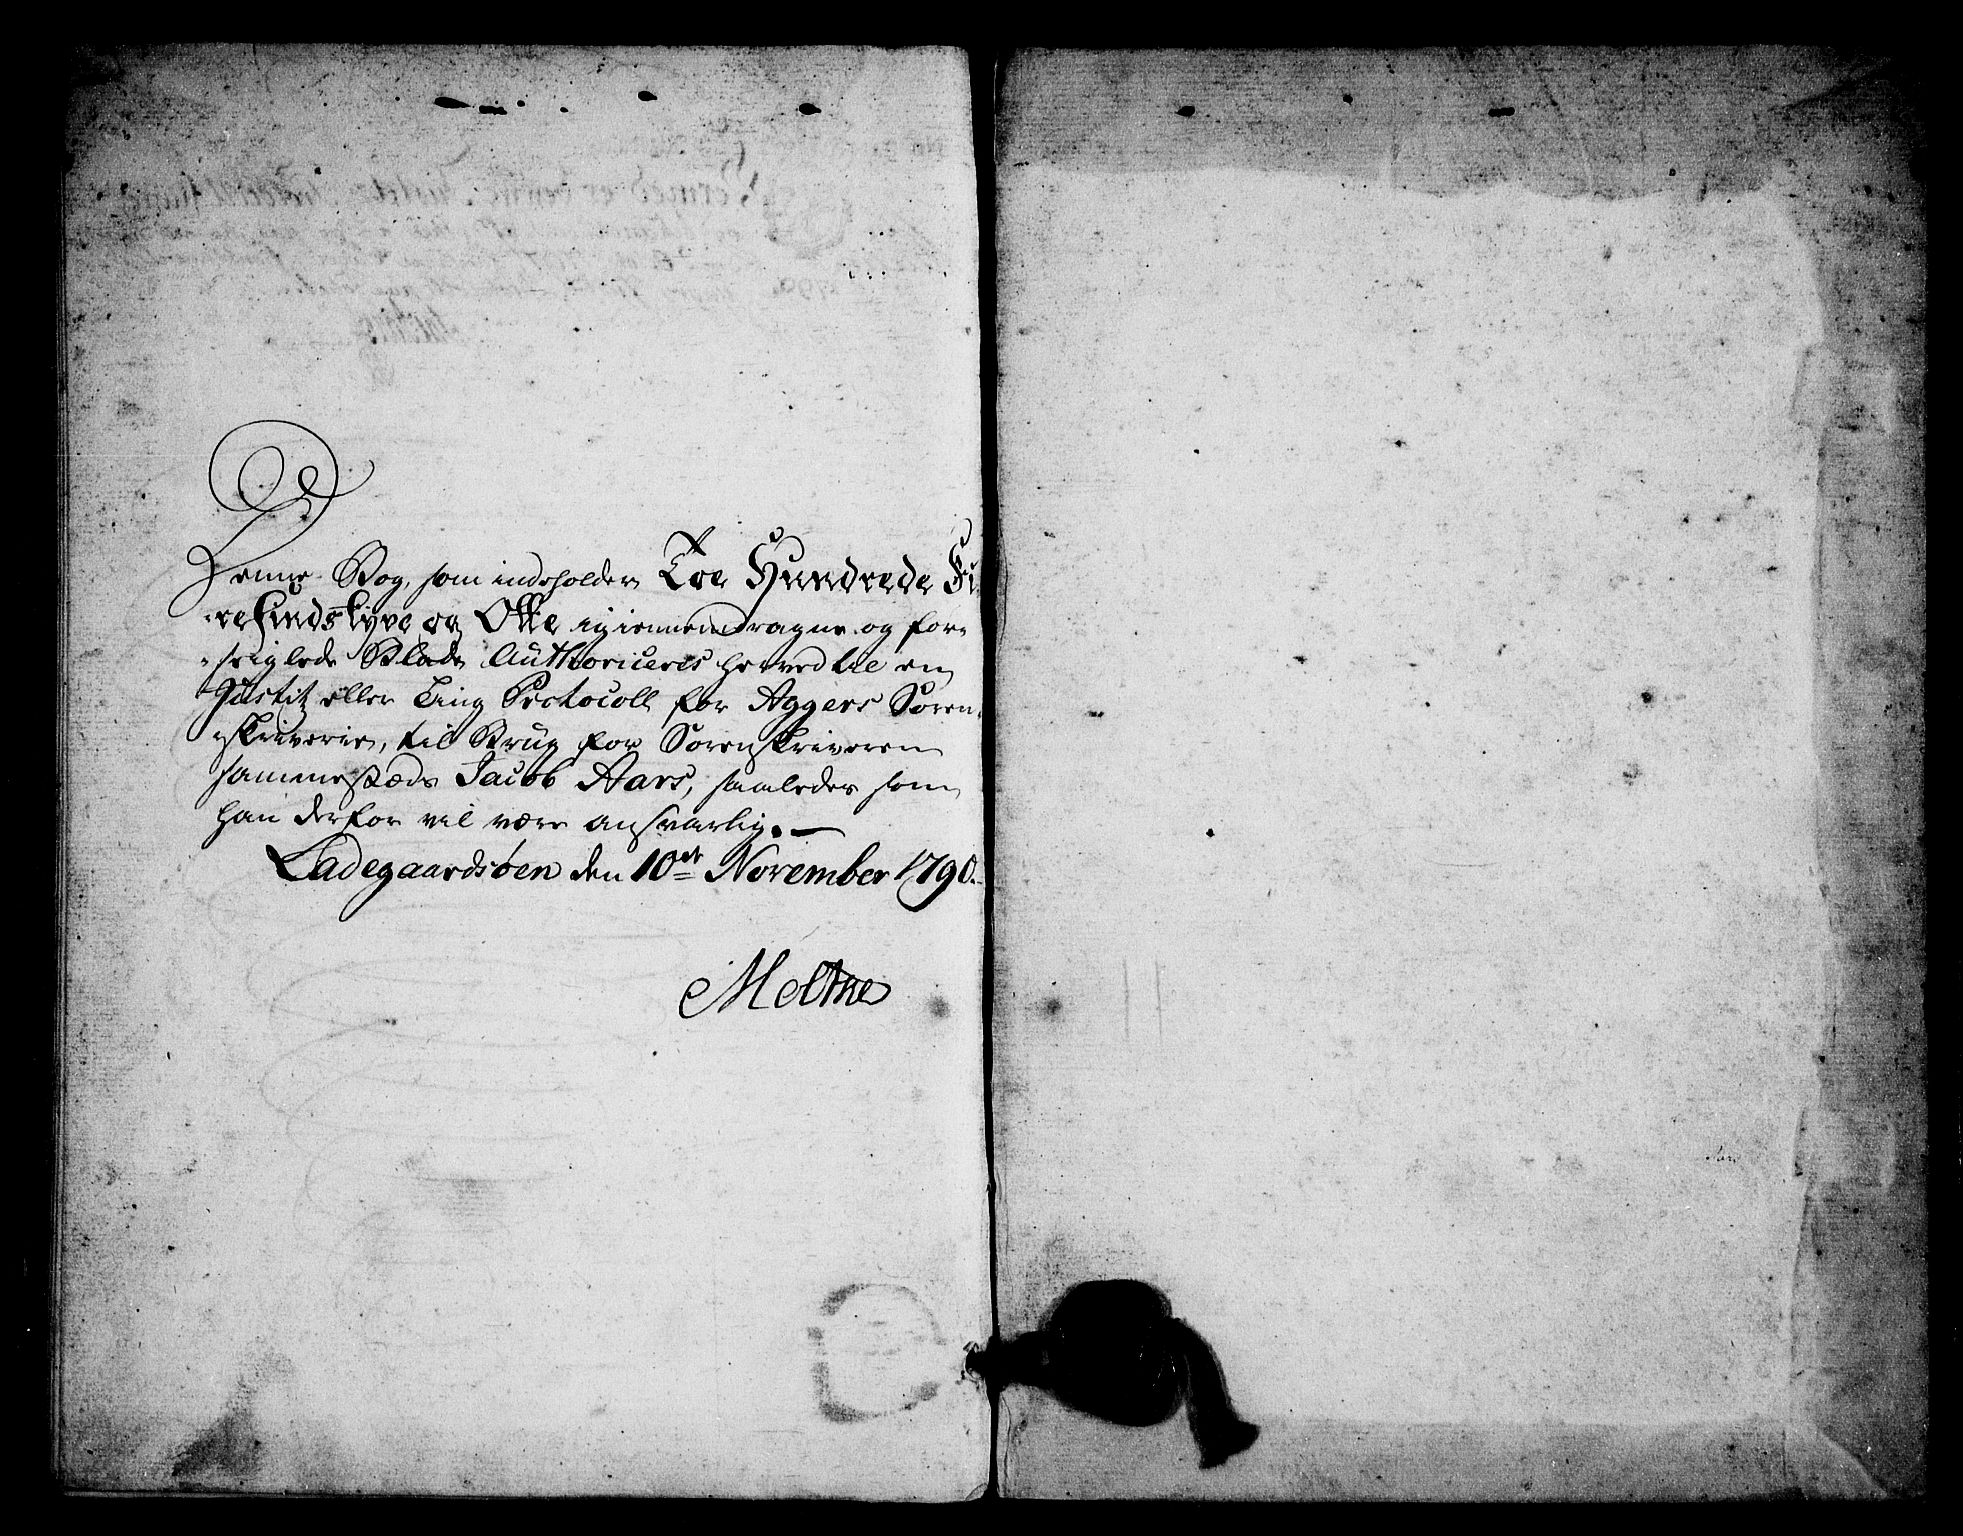 Denne Bog, som indeholder Toe Hundrede Fi-
refindstyve og Otte igiennemdragne og for-
seiglede Blade Authoriceres herved til en
Justitz eller Ting Protocoll for Aggers Soren-
skriverie, til Brug for Sorenskriveren
sammestæds Jacob Aars, saaledes som
han derfor vil være ansvarlig. —
Ladegaardsøen den 10de November 1790.
Moltke